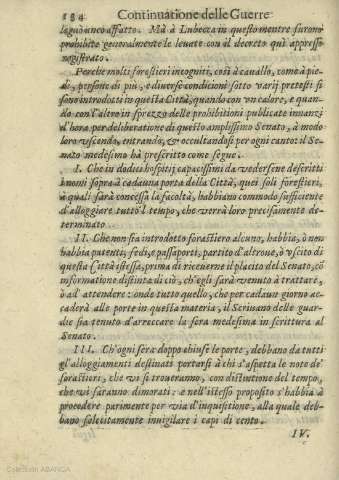 184 Continuatione delle Guerre
lagnò anco affatto. Mà à Lubecca in questo mentre furono
prohibite generalmente le leuate con al decreto quì appresso
registrato.
Perche molti forastieri incogniti, così à cauallo, come à pie-
di, persone di più, e diuerse conditioni sotto varij pretesti si
sono introdotti in questa Città, quando con vn calore, e quan-
do con l'altro in sprezzo delle prohibitioni publicate innanzi
d'hora per deliberatione di questo amplissimo Senato, à modo
loro vscendo, entrando, & occultandosi per ogni canto: il Se-
nato medesimo hà prescritto come segue.
I. Che in dodici hospitij capacissimi da vedersene descritti
i nomi sopra à cadauna porta della Città, quei soli forestieri,
à quali sarà concessa la facoltà, habbiano commodo sufficiente
d'alloggiare tutto'l tempo, che verrà loro precisamente de-
terminato.
II. Che non sia introdotto forastiero alcuno, habbia, ò non
habbia patenti, fedi, e passaporti, partito d'altrone, ò vscito di
questa Città istessa, prima di riceuerne il placito del Senato, cō
informatione distinta di ciò, ch'egli sarà venuto à trattare,
ò ad attendere: onde tutto quello, che per cadaun giorno ac-
caderà alle porte in questa materia, il Scriuano delle guar-
die sia tenuto d'arreccare la sera medesima in scrittura al
Senato.
III. Ch'ogni sera doppo chiuse le porte, debbano da tutti
gl'alloggiamenti destinati portarsi à chi s'aspetta le note de'
forastieri, che vi si troueranno, con distintione del tempo,
che vi saranno dimorati: e nell'istesso proposito s'habbia à
procedere parimente per via d'inquisitione, alla quale deb-
bano solecitamente inuigilare i capi di cento.
IV.
Colección ABANCA